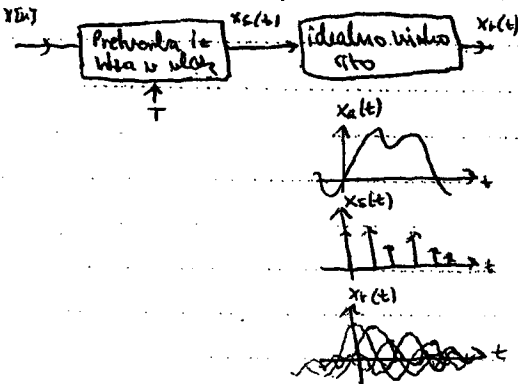 x[n]
Pretvorba iz
niza u vlak
xs(t)
idealno nisko
sito
xr(t)
T
xa(t)
t
xs(t)
t
xr(t)
t